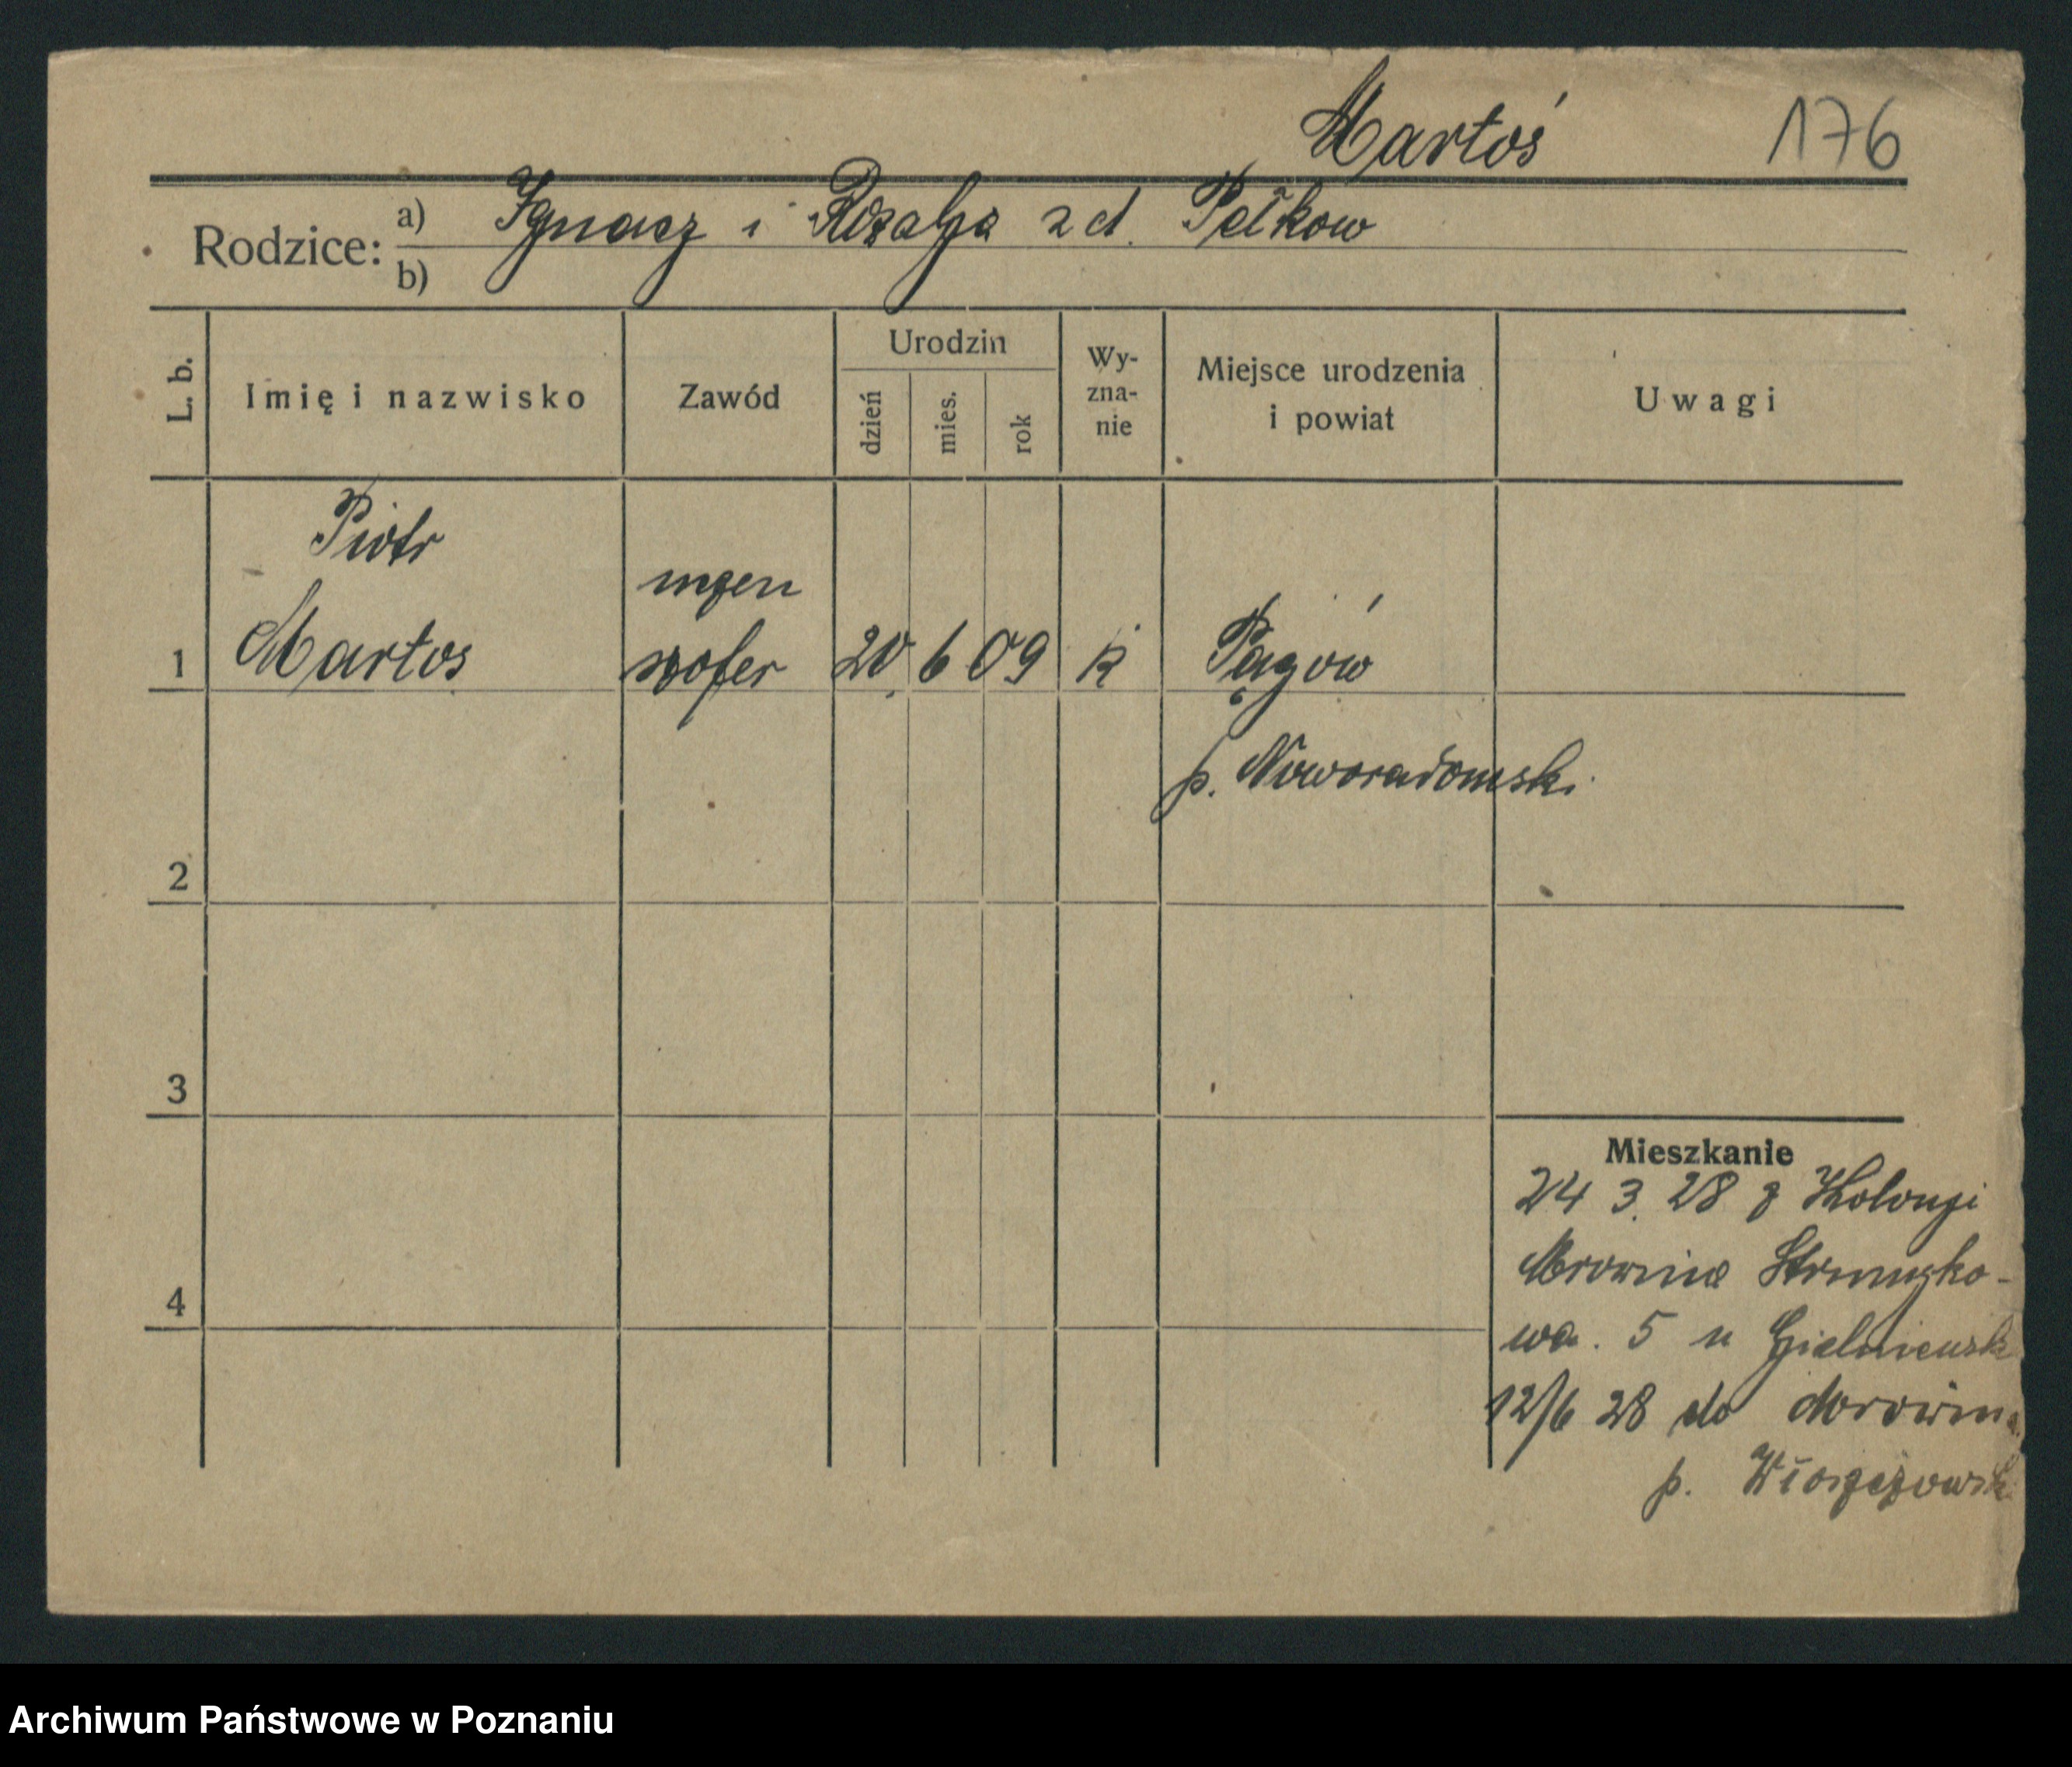 Martoś 176
Rodzice: a) Ignacz i Rozalja z d. Pełkow
b)
L. b. Imię i nazwisko Zawód Urodzin dzień mies. rok Wy-zna-nie Miejsce urodzenia i powiat Uwagi
Piotr
1 Martos szofer 20 6 09 k Pągów
p. Noworadomski
2
3
4
Mieszkanie
24 3. 28 z Kolonji
Mrowina
wa. 5 u
12/6 28 do Mrowina
p. Włoszczowsk
Archiwum Państwowe w Poznaniu